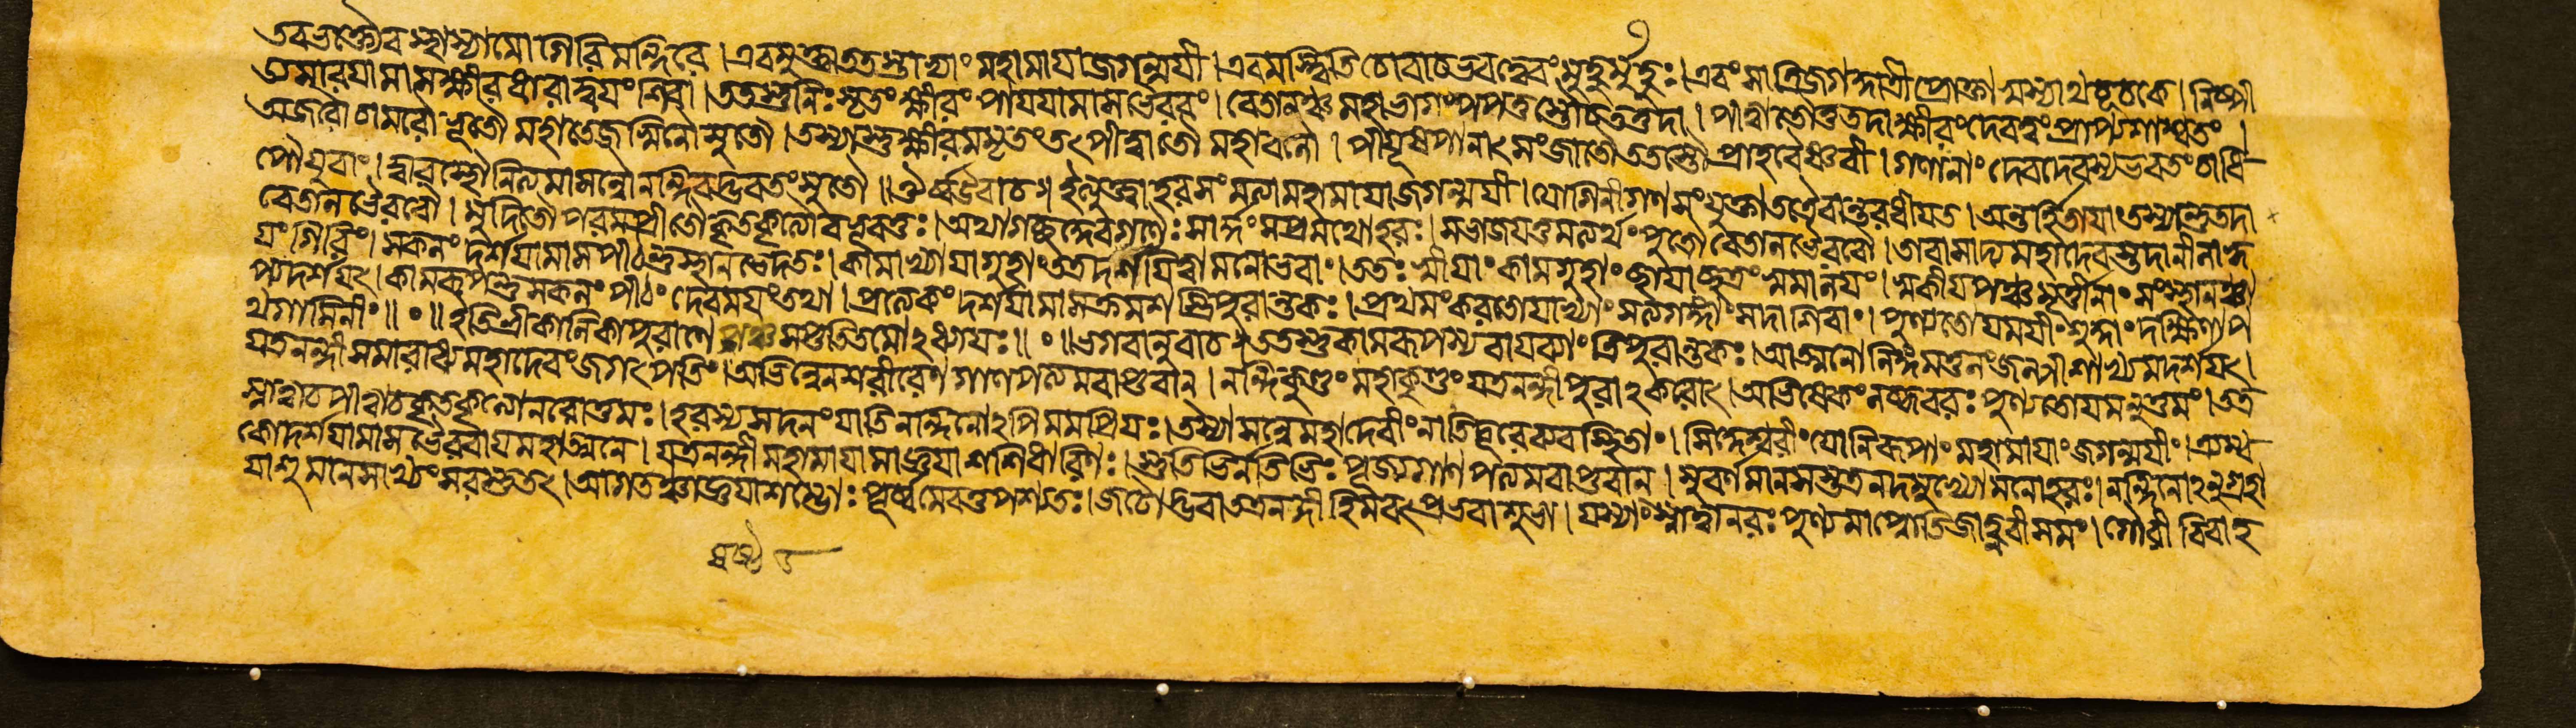 ভবভক্ত্যৈব স্থাস্যামো গিরিমন্দিরে । এবমুক্ত্বা ততস্তাভ্যাং মহামায়া জগন্ময়ী । এবমস্ত্বিতি চোবাচ ভবত্বেবং মুহুর্মুহুঃ । এবং সা ত্রিজগদ্ধাত্রী প্রোক্তা
ক্ষীরধারাস্বয়ং শিবা । ততস্তু নিঃসৃতং ক্ষীরং পায়য়ামাস ভৈরবং । বেতালঞ্চ মহাভাগং তদা । পীত্বা তৌ তু তদা ক্ষীরং দেবত্বং প্রাপ্য শাশ্বতং ।
অজরৌ চামরৌ ভূতৌ মহাতেজস্বিনৌ সুতৌ । তস্যাস্তু ক্ষীরমমৃতং তৎ পীত্বা তৌ মহাবলৌ । পীযূষপানাৎ সংজাতৌ ততস্তৌ প্রাহ বৈষ্ণবী । গণানাং দেবদেবস্য ভবতং চাধি
পৌ যুবাং । দ্বারস্থৌ নিত্যমাসন্নৌ নন্দিবদ্ভবতং সুতৌ ॥ ঔর্ব্ব উবাচ ॥ ইত্যুক্ত্বা হরসংমত্যা মহামায়া জগন্ময়ী । যোগিনীগণসংযুক্তা তত্রৈবান্তরধীয়ত । অন্তর্হিতায়াং তস্যান্তু তদা
বেতালভৈরবৌ । মুদিতৌ পরমপ্রীতৌ কৃতকৃত্যৌ বভূবতুঃ । অথাগচ্ছদ্দেবগণৈঃ সার্দ্ধং সপ্রমথো হরঃ । সভাজয়িতুমত্যর্থং পুত্রৌ বেতালভৈরবৌ । তাবাসাদ্য মহাদেবস্তদা নীলাহ্ব
য়ং গিরিং । সকলং দর্শয়ামাস পীঠন্তু স্থানভেদতঃ । কামাখ্যায়া গুহাং তত্র দর্শয়িত্বা মনোভবাং । ততঃ স্বীয়াং কামগুহাং ছায়াছত্রং স্বমালয়ং । স্বকীয়পঞ্চমূর্ত্তীনাং সংস্থানঞ্চা
প্যদর্শয়ৎ । কামরূপন্তু সকলং পীঠং দেবময়ং তথা । প্রত্যেকং দর্শয়ামাস ক্রমশস্ত্রিপুরান্তকঃ । প্রথমং করতোয়াখ্যাং সত্যগঙ্গাং সদাশিবাং । পুণ্যতোয়ময়ীং শুদ্ধাং দক্ষিণাপ
থগামিনীং ॥ ॰ ॥ ইতি শ্রীকালিকাপুরাণে পঞ্চসপ্ততিতমোঽধ্যায়ঃ ॥ ॰ ॥ ভগবানুবাচ ॥ ততস্তু কামরূপস্য বায়ব্যাং ত্রিপুরান্তকঃ । আত্মনো লিঙ্গমতুলং জল্পীশাখ্যমদর্শয়ৎ ।
যত্র নন্দী সমারাধ্য মহাদেবং জগৎপতিং । অভিন্নেন শরীরেণ গাণপত্যমবাপ্তবান্ । নন্দিকুণ্ডং মহাকুণ্ডং যত্র নন্দী পুরাঽকরোৎ । অভিষেকং লব্ধবরঃ পুণ্যতোয়মনুত্তমং । তত্র
স্নাত্বা চ পীত্বা চ কৃতকৃত্যো নরোত্তমঃ । হরস্য সদনং যাতি নন্দিনোঽপি মম প্রিয়ঃ । তস্যাসন্নে মহাদেবীং নাতিদূরে ব্যবস্থিতাং । সিদ্ধেশ্বরীং যোনিরূপাং মহামায়াং জগন্ময়ীং । ত্র্যম্ব
কো দর্শয়ামাস ভৈরবায় মহাত্মনে । যত্র নন্দী মহামায়ামাজ্ঞয়া শশিধারিণঃ । স্তুতিভির্নতিভিঃ পূজ্য গাণপত্যমবাপ্তবান্ । সুবর্ণমানসস্তত্র নদমুখ্যো মনোহরঃ । নন্দিনোঽনুগ্রহা
য়াশু মানসাখ্যং সরস্তু তৎ । আগতঞ্চাজ্ঞয়া শম্ভোঃ পূর্ব্বমেব তপস্যতঃ । জটোদ্ভবা তত্র নদী হিমবৎপ্রভবা শুভা । যস্যাং স্নাত্বা নরঃ পুণ্যমাপ্নোতি জাহ্নবীসমং । গৌরীবিবাহ